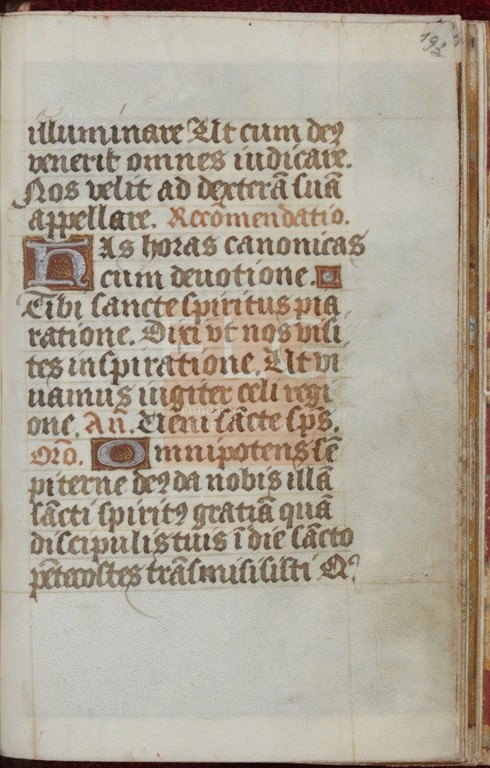 192
illuminare Ut cum deꝰ
venerit omnes iudicare.
Nos velit ad dexterā suā
appellare. Recōmendatio.
HAs horas canonicas
cum deuotione.
Tibi sancte spiritus pia
ratione. Dixi vt nos visi
tes inspiratione. Ut vi
uamus iugiter celi regi
one. An̄. Veni sācte sp̄s.
Orō. Omnipotens sē
piterne deꝰ da nobis illā
sācti spiritꝰ gratiā quā
discipulis tuis ī die sācto
pētecostes trāsmisisti Qꝰ